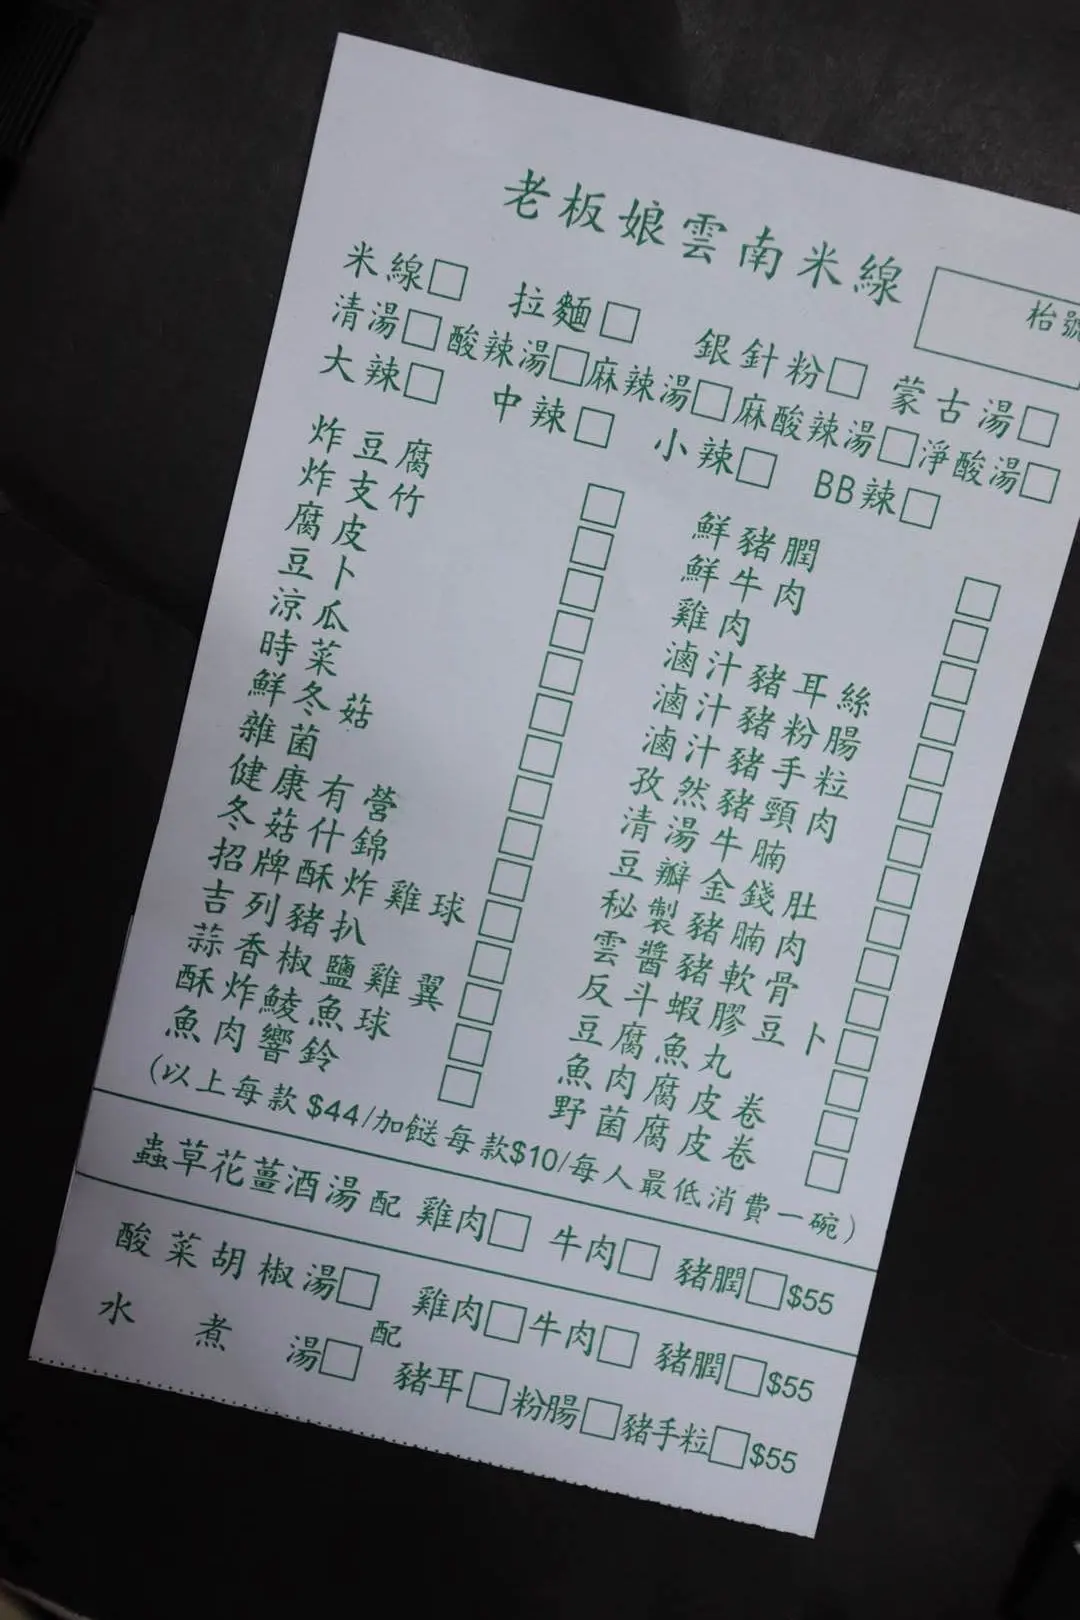 老板娘雲南米線
枱號
米線□ 拉麵□ 銀針粉□ 蒙古湯□
清湯□ 酸辣湯□ 麻辣湯□ 麻酸辣湯□ 淨酸湯□
大辣□ 中辣□ 小辣□ BB辣□
炸豆腐 □ 鮮豬膶 □
炸支竹 □ 鮮牛肉 □
腐皮 □ 雞肉 □
豆卜 □ 滷汁豬耳絲 □
涼瓜 □ 滷汁豬粉腸 □
時菜 □ 滷汁豬手粒 □
鮮冬菇 □ 孜然豬頸肉 □
雜菌 □ 清湯牛腩 □
健康有營 □ 豆瓣金錢肚 □
冬菇什錦 □ 秘製豬腩肉 □
招牌酥炸雞球 □ 雲醬豬軟骨 □
吉列豬扒 □ 反斗蝦膠豆卜 □
蒜香椒鹽雞翼 □ 豆腐魚丸 □
酥炸鯪魚球 □ 魚肉腐皮卷 □
魚肉響鈴 □ 野菌腐皮卷 □
(以上每款$44/加餸每款$10/每人最低消費一碗)
蟲草花薑酒湯 配 雞肉□ 牛肉□ 豬膶□$55
酸菜胡椒湯□ 雞肉□牛肉□ 豬膶□$55
配
水煮湯□ 豬耳□粉腸□豬手粒□$55